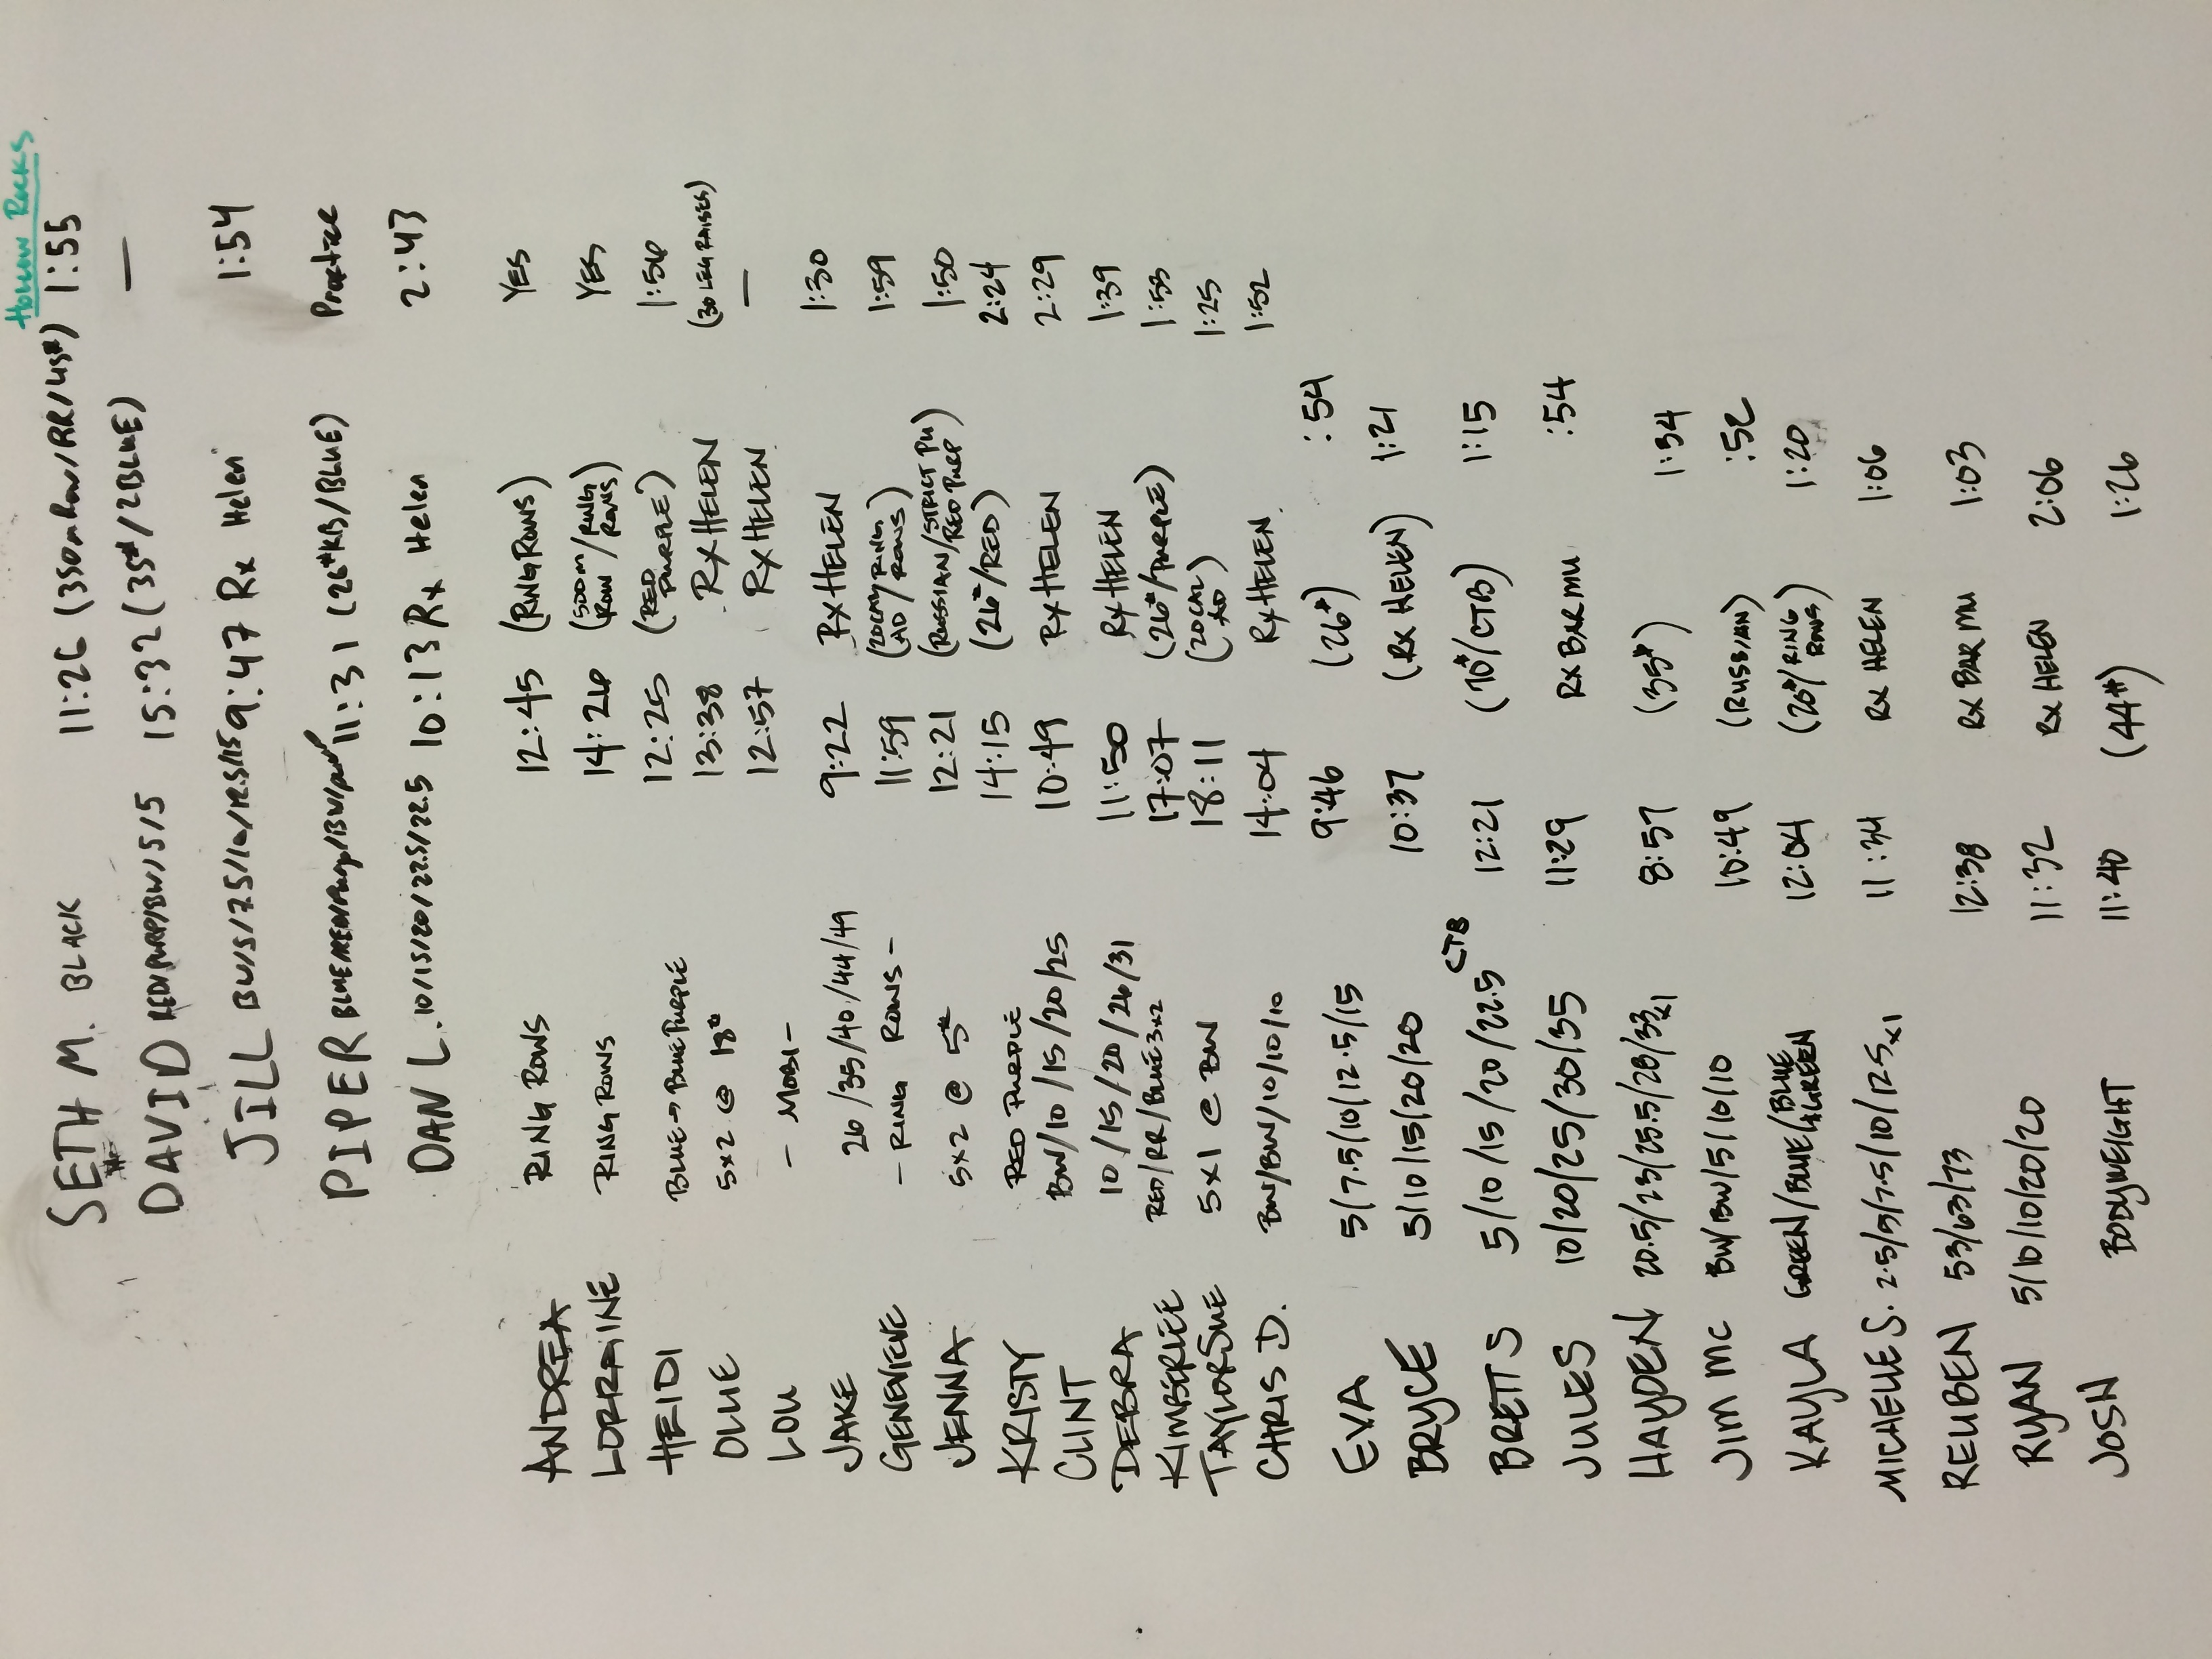 HOLLOW ROCKS
SETH M. BLACK 11:26 (350m Row/RR/45#) 1:55
DAVID RED/PURP/BW/5/5 15:32 (35#/2BLUE) —
JILL BW/5/7.5/10/12.5/15 9:47 Rx Helen 1:54
PIPER 11:31 (26#KB/BLUE) Practice
DAN L. 10/15/20/22.5/22.5 10:13 Rx Helen 2:43
ANDREA RING ROWS 12:45 (RING ROWS) YES
LORRAINE RING ROWS 14:26 (500m ROW/RING ROWS) YES
HEIDI BLUE→BLUE PURPLE 12:25 (RED PURPLE) 1:56 (30 LEG RAISES)
OLLIE 5x2 @ 18# 13:38 Rx HELEN —
LOU - MOBI - 12:57 Rx HELEN
JAKE 26/35/40/44/49 9:22 Rx HELEN 1:30
GENEVIEVE - RING ROWS - 11:59 (20 CAL AD/RING ROWS) 1:59
JENNA 5x2 @ 5# 12:21 (RUSSIAN/STRICT PU RED PURP) 1:50
KRISTY RED PURPLE 14:15 (26#/RED) 2:24
CLINT BW/10/15/20/25 10:49 Rx HELEN 2:29
DEBRA 10/15/20/26/31 11:50 Rx HELEN 1:39
KIMBERLEE RED/RR/BLUE 3x2 17:07 (26#/PURPLE) 1:53
TAYLOR SUE 5x1 @ BW 18:11 (20 CAL AD) 1:25
CHRIS D. BW/BW/10/10/10 14:04 Rx HELEN 1:52
EVA 5/7.5/10/12.5/15 9:46 (26#) :54
BRYCE 5/10/15/20/20 10:37 (Rx HELEN) 1:21
BRETT S 5/10/15/20/22.5 CTB 12:21 (70#/CTB) 1:15
JULES 10/20/25/30/35 11:29 Rx BAR MU :54
HAYDEN 20.5/23/25.5/28/33x1 8:57 (35#) 1:34
JIM MC BW/BW/5/10/10 10:49 (RUSSIAN) :52
KAYLA GREEN/BLUE/BLUE &GREEN 12:04 (26#/RING ROWS) 1:20
MICHELLE S. 2.5/5/7.5/10/12.5x1 11:34 Rx HELEN 1:06
REUBEN 53/63/73 12:38 Rx BAR MU 1:03
RYAN 5/10/10/20/20 11:32 Rx HELEN 2:06
JOSH BODYWEIGHT 11:40 (44#) 1:26